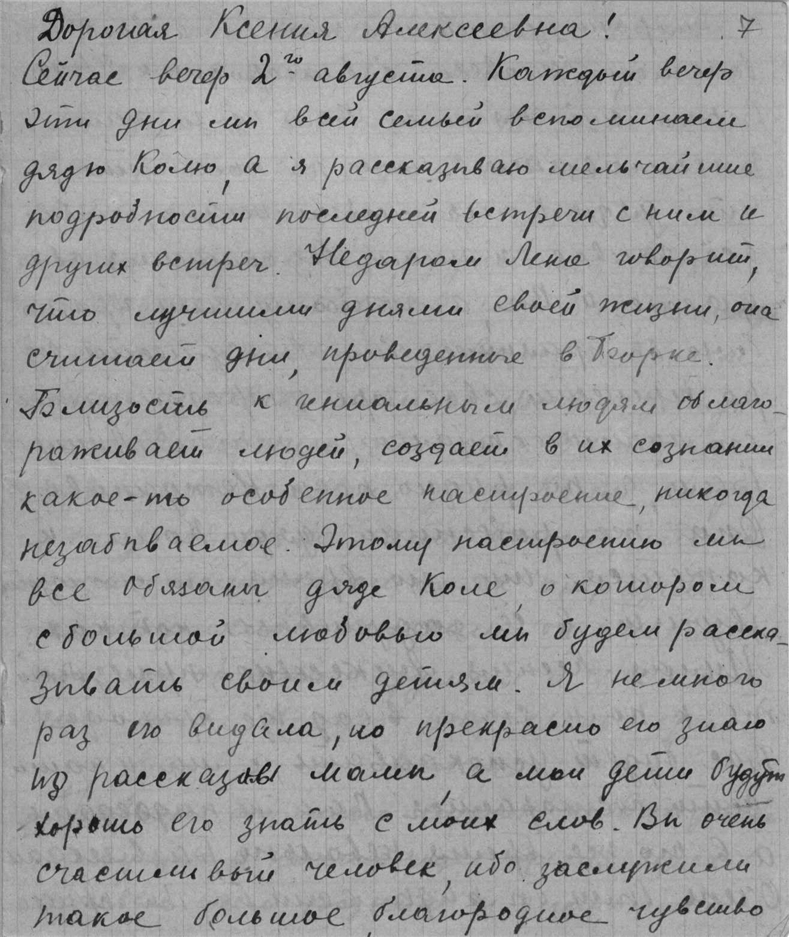 Дорогая Ксения Алексеевна! 7
Сейчас вечер 2го августа. Каждый вечер
эти дни мы всей семьей вспоминаем
дядю Колю, а я рассказываю мельчайшие
подробности последней встречи с ним и
других встреч. Недаром Лена говорит,
что лучшими днями своей жизни, она
считает дни, проведенные в Борке.
Близость к гениальным людям облаго-
раживает людей, создает в их сознании
какое-то особенное настроение, никогда
незабываемое. Этому настроению мы
все обязаны дяде Коле, о котором
с большой любовью мы будем расска-
зывать своим детям. Я немного
раз его видела, но прекрасно его знаю
из рассказов мамы, а мои дети будут
хорошо его знать с моих слов. Вы очень
счастливый человек, ибо заслужили
такое большое благородное чувство